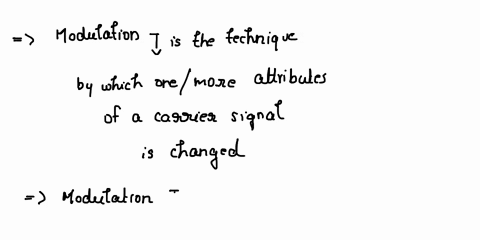 => Modulation is the technique
by which one/more attributes
of a carrier signal
is changed
=> Modulation -